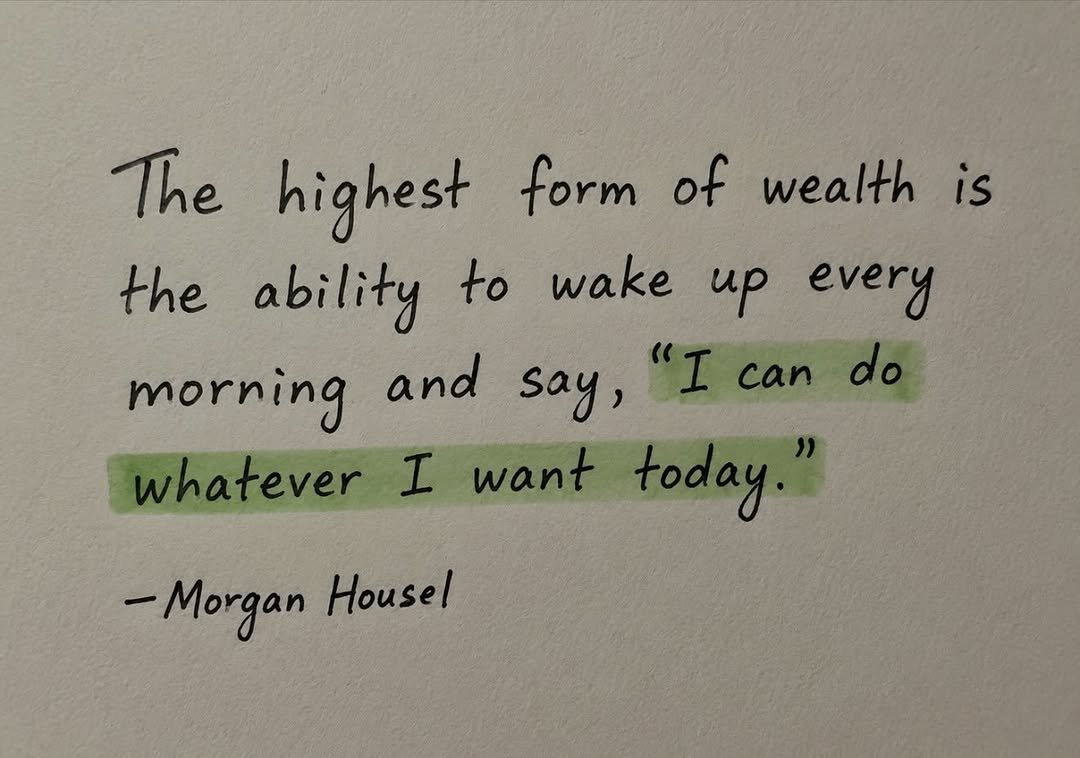 The highest form of wealth is
the ability to wake up every
morning and say, “I can do
whatever I want today.”
—Morgan Housel